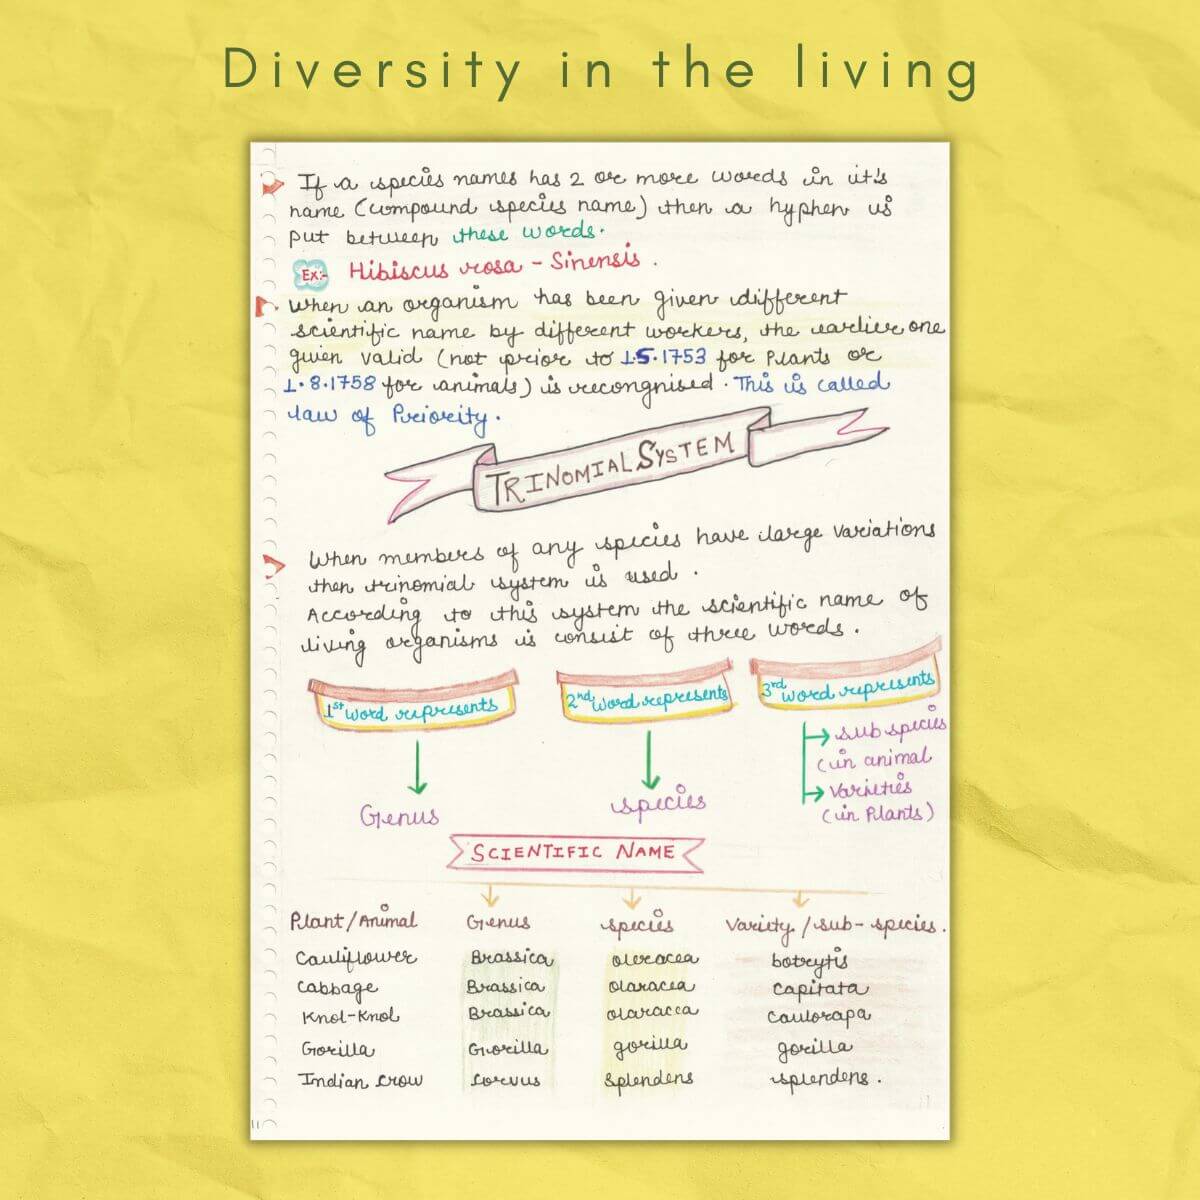 Diversity in the living
If a species names has 2 or more words in it's
name (compound species name) then a hyphen is
put between these words.
Ex:- Hibiscus rosa - Sinensis .
When an organism has been given different
scientific name by different workers, the earlier one
given valid (not prior to 1.5.1753 for Plants or
1.8.1758 for animals) is recongnised. This is called
law of Priority.
TRINOMIAL SYSTEM
When members of any species have large variations
then trinomial system is used .
According to this system the scientific name of
living organisms is consist of three words.
1st word represents 2nd word represents 3rd word represents
Genus species sub species
(in animal
varieties
(in Plants)
SCIENTIFIC NAME
Plant/Animal Genus species Variety / sub-species.
Cauliflower Brassica oleracea botrytis
Cabbage Brassica olaracea capitata
Knol-Knol Brassica olaracca caulorapa
Gorilla Guorilla gorilla gorilla
Indian crow corvus splendens splendens .
11